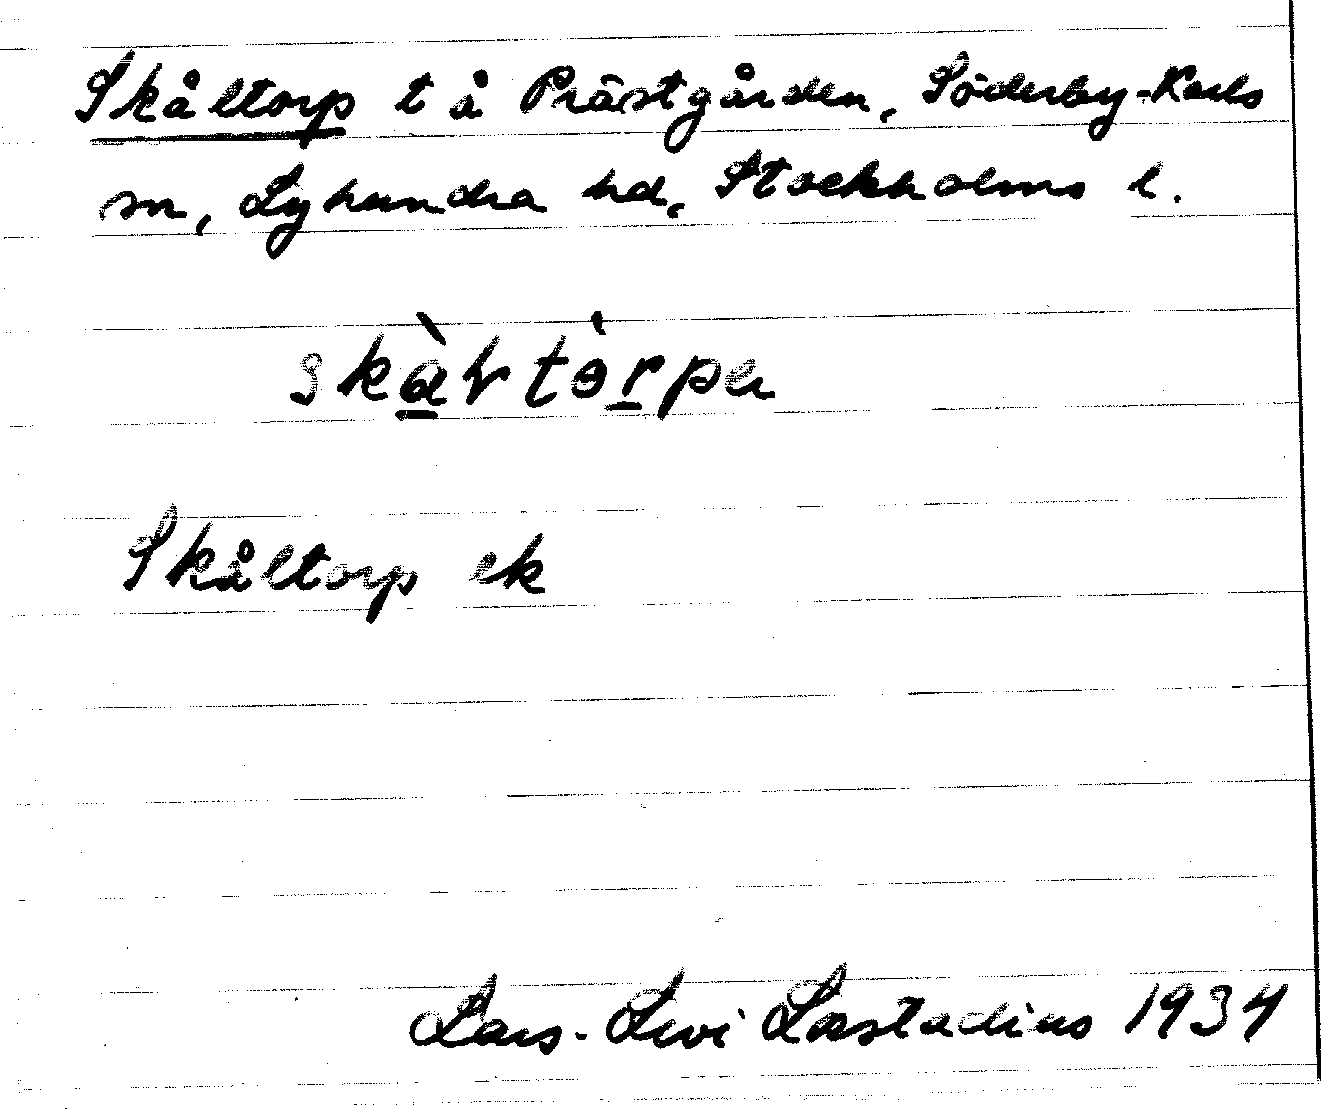 Skåltorp t å Prästgården, Söderby-Karls
sn, Lyhundra hd, Stockholms l.
Skåltorp ek
Lars-Levi Læstadius 1934